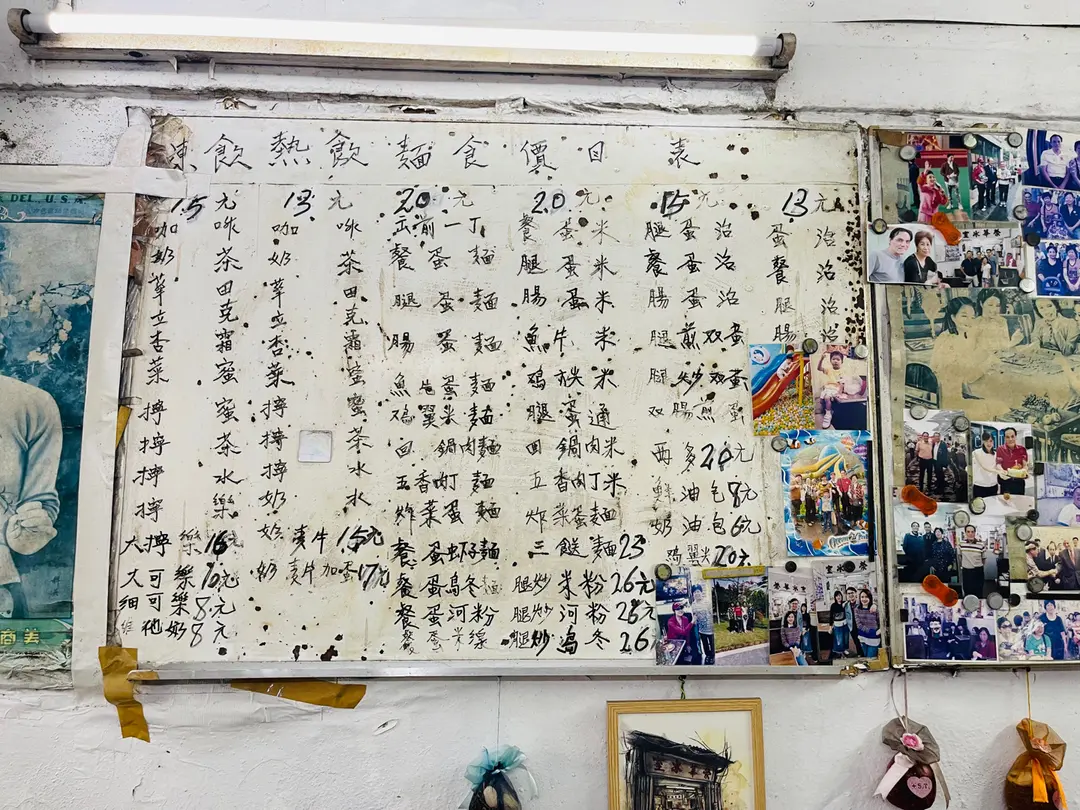 凍飲熱飲麵食價目表
15元
咖啡
奶茶
華田
立克
杏霜
菜蜜
擰蜜
擰茶
擰水
擰樂
大擰樂16元
大可樂10元
細可樂8元
維他奶8元
13元
咖啡
奶茶
華田
立克
杏霜
菜蜜
擰蜜
擰茶
擰水
奶水
麦牛15元
奶麦牛加蛋17元
20元
出前一丁
餐蛋麵
腿蛋麵
腸蛋麵
魚片蛋麵
鸡翼米麵
回鍋肉麵
五香肉丁麵
炸菜蛋麵
餐蛋虾仔麵
餐蛋烏冬麵
餐蛋河粉
餐蛋米線
20元
餐蛋米
腿蛋米
腸蛋米
魚片米
鸡米
腿蛋通
回鍋肉米
五香肉丁米
炸菜蛋麵
三餸麵23
腿炒米粉26元
腿炒河粉26元
腿炒烏冬26
15元
腿蛋治
餐蛋治
腸蛋治
腿煎双蛋
腿炒双蛋
双腸煎蛋
西多20元
鮮油包8元
奶油包6元
鸡翼米20元
13元
蛋治
餐治
腿治
腸治
DEL U.S.A.
美商